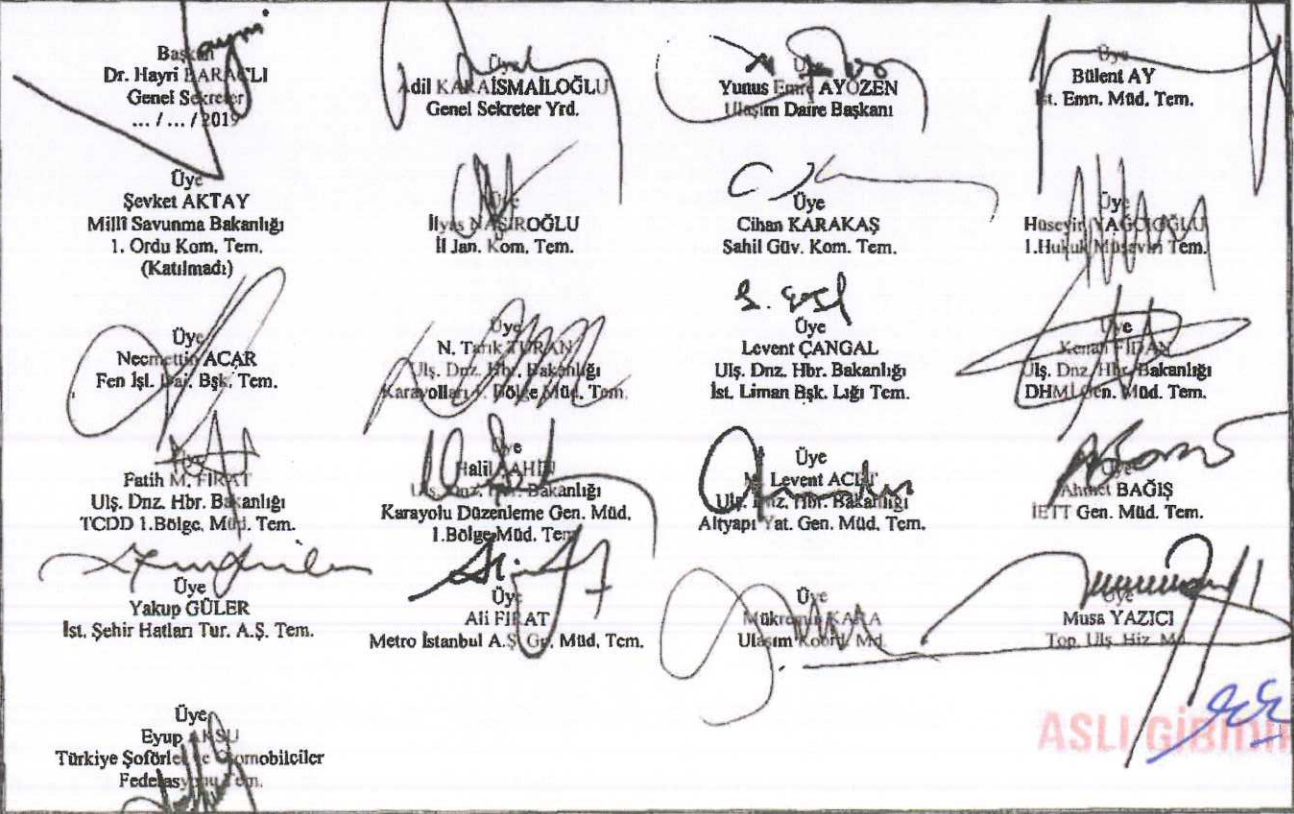 Başkan
Dr. Hayri BARAÇLI
Genel Sekreter
... / ... / 2019
Üye
Adil KARAİSMAİLOĞLU
Genel Sekreter Yrd.
Üye
Yunus Emre AYÖZEN
Ulaşım Daire Başkanı
Üye
Bülent AY
İst. Emn. Müd. Tem.
Üye
Şevket AKTAY
Milli Savunma Bakanlığı
1. Ordu Kom. Tem.
(Katılmadı)
Üye
İlyas NAŞİROĞLU
İl Jan. Kom. Tem.
Üye
Cihan KARAKAŞ
Sahil Güv. Kom. Tem.
Üye
Hüseyin
1.Hukuk Müşaviri Tem.
Üye
Necmettin ACAR
Fen İşl. Dai. Bşk. Tem.
Üye
N. Tarık TURAN
Ulş. Dnz. Hbr. Bakanlığı
Karayolları Bölge Müd. Tem.
Üye
Levent ÇANGAL
Ulş. Dnz. Hbr. Bakanlığı
İst. Liman Bşk. Lığı Tem.
Üye
Kenan FİDAN
Ulş. Dnz. Hbr. Bakanlığı
DHMİ Gen. Müd. Tem.
Üye
Fatih M. FIRAT
Ulş. Dnz. Hbr. Bakanlığı
TCDD 1.Bölge. Müd. Tem.
Üye
Halil ŞAHİN
Ulş. Dnz. Hbr. Bakanlığı
Karayolu Düzenleme Gen. Müd.
1.Bölge Müd. Tem.
Üye
Levent
Ulş. Dnz. Hbr. Bakanlığı
Altyapı Yat. Gen. Müd. Tem.
Üye
Ahmet BAĞIŞ
İETT Gen. Müd. Tem.
Üye
Yakup GÜLER
İst. Şehir Hatları Tur. A.Ş. Tem.
Üye
Ali FIRAT
Metro İstanbul A.Ş. Gn. Müd. Tem.
Üye
Mükremin KARA
Ulaşım Koord. Md.
Üye
Musa YAZICI
Top. Ulş. Hiz. Md.
Üye
Eyup AKSU
Türkiye Şoförler ve Otomobilciler
Federasyonu Tem.
ASLI GİBİDİR